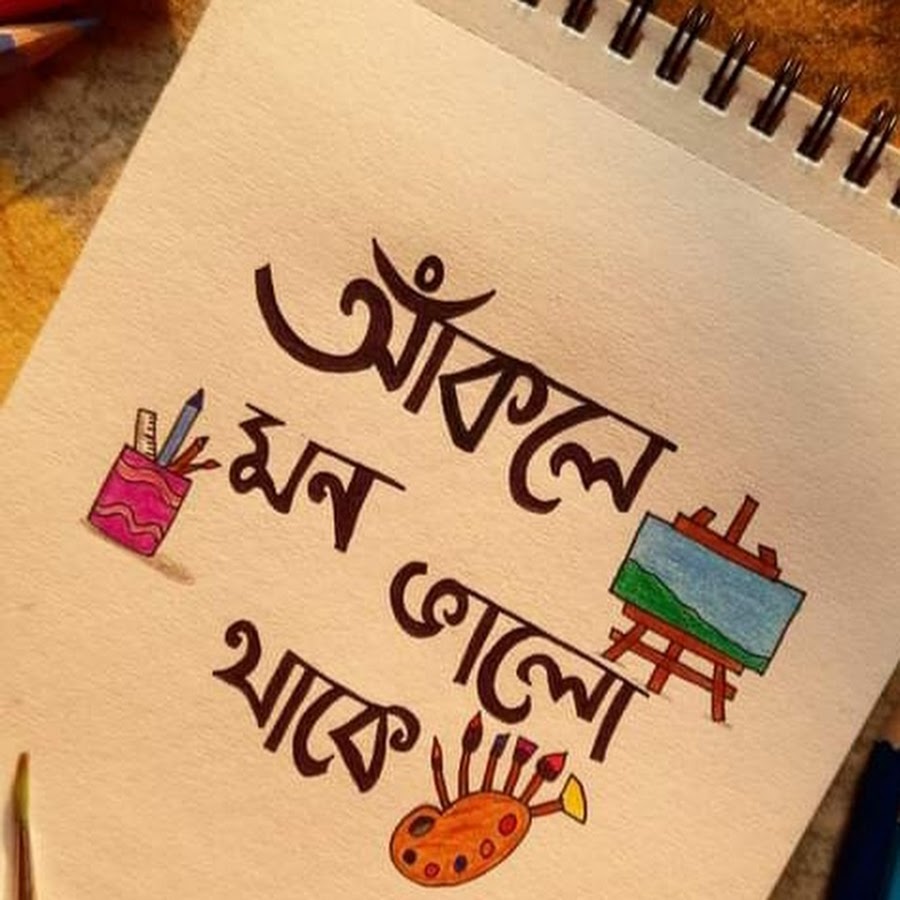 আঁকলে
মন
ভালো
থাকে